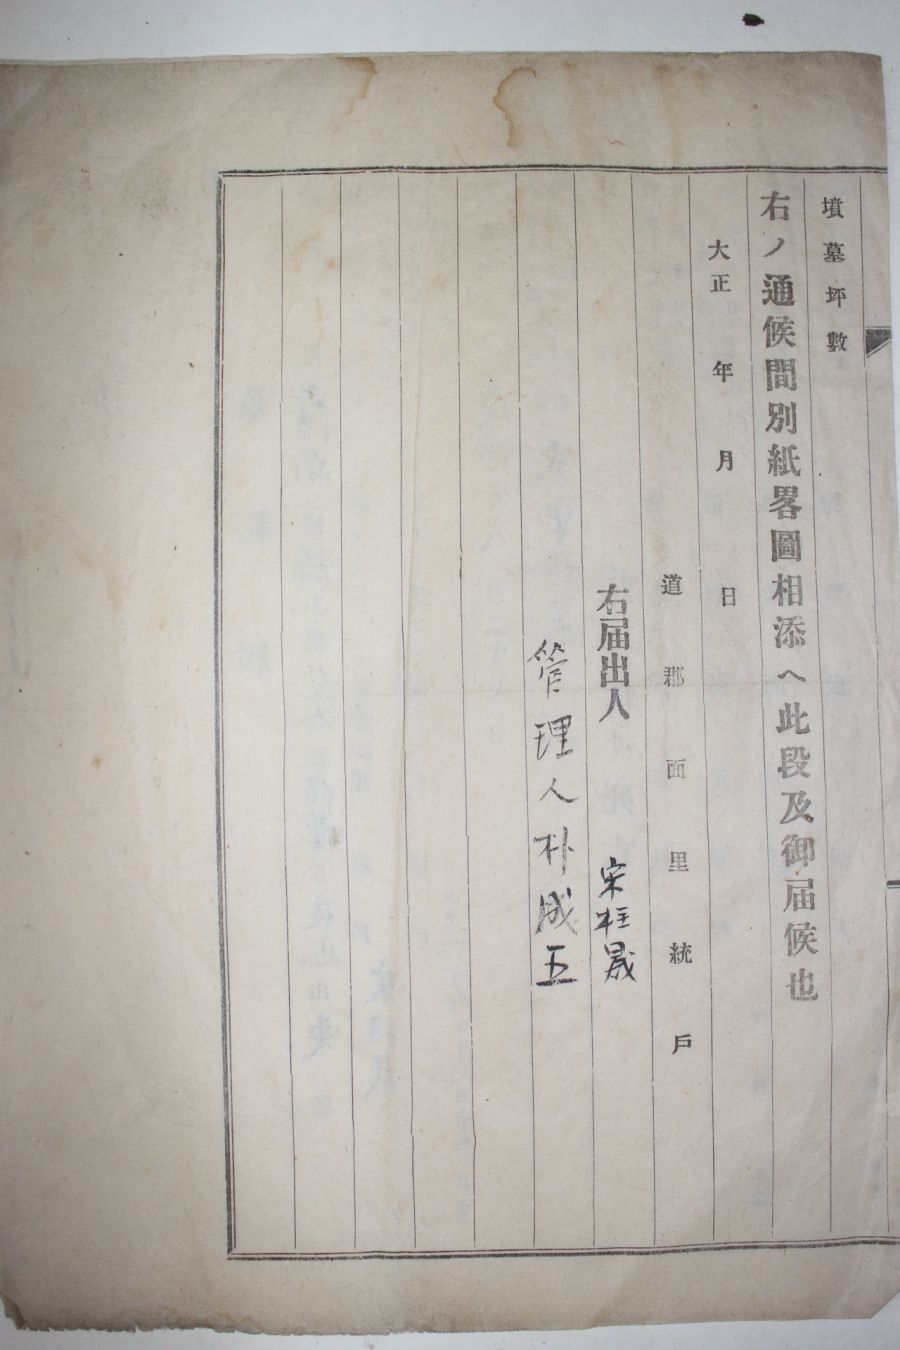 墳墓坪數
右ノ通候間別紙畧圖相添ヘ此段及御届候也
大正　年　月　日
道　郡　面　里　統　戶
右届出人　宋柱晟
管理人朴成五